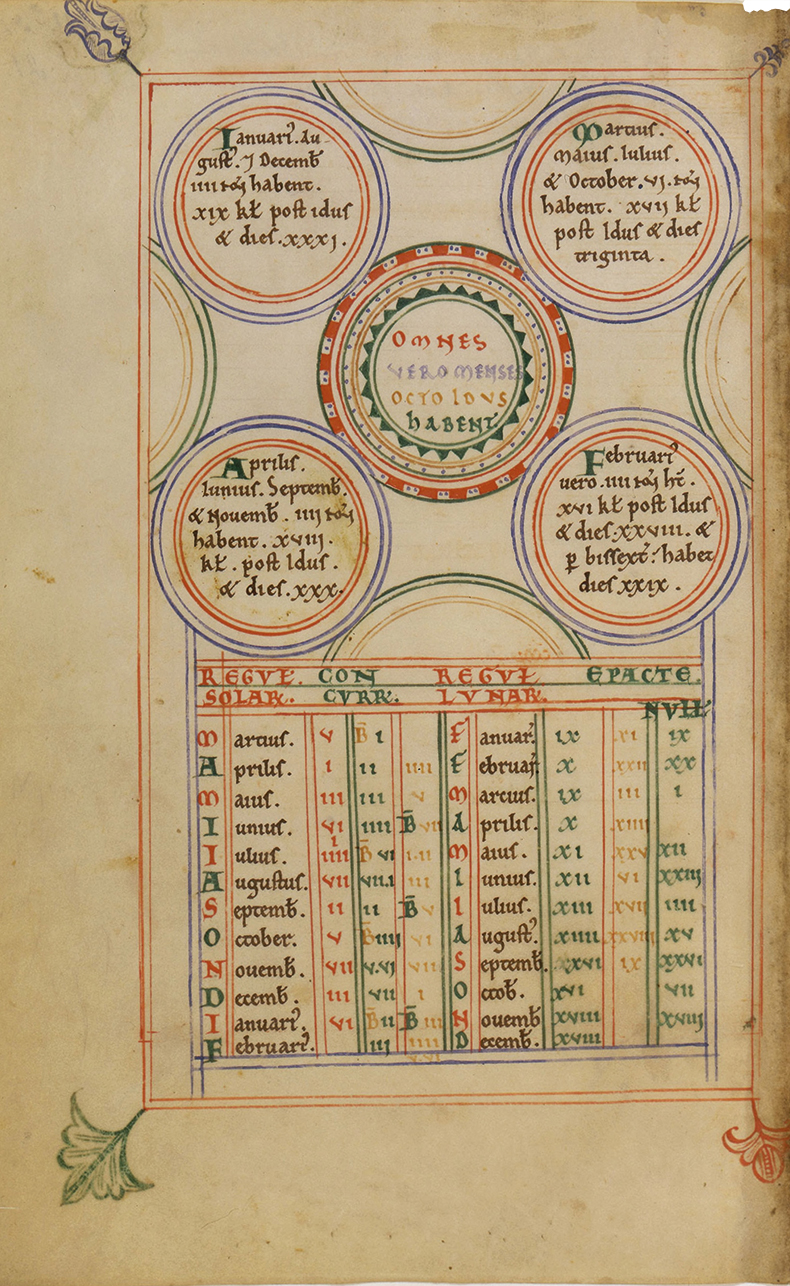 Ianuari᾽. Au-
gust᾽. ⁊ Decemb̄
habent.
xix kł post idus
& dies.xxxj.
Martius.
Maius. Iulius.
& October. vi.
habent. xvij kł
post Idus & dies
triginta.
OMNES
VERO MENSES
OCTO IDVS
HABENT
Aprilis.
Iunius. Septemb̄.
& Nouemb̄. iiij
habent. xviij.
kł. post Idus.
& dies.xxx.
Februari᾽
uero.iiij
xvi kł post Idus
& dies.xxviii. &
ꝑ bissext᾽ habet
dies xxix.
REGVŁ. CON REGVŁ EPACTE.
SOLAR. CVRR. LVNAR.
NVLL
Martius. v B̄ i Ianuar᾽. ix xi ix
Aprilis. i ii iiii Februar᾽. x xxii xx
Maius. iii iii v Marcius. ix iii i
Iunius. vi iiii B̄ vii Aprilis. x xiiii
Iulius. iiii B̄ vi i.ii Maius. xi xxv xii
Augustus. vii vii.i iii Iunius. xii vi xxiij
Septemb̄. ii ii B̄ v Iulius. xiii xvii iiii
October. v B̄ iiij vi August᾽. xiiii xxviii xv
Nouemb̄. vii v.vi vii Septemb̄. xxvi ix xxvi
Decemb̄. iii vii i Octob̄. xvi vii
Ianuari᾽. vi B̄ ii B̄ iii Nouemb̄ xviii xviij
Februari᾽. iii iiii Decemb̄. xviii